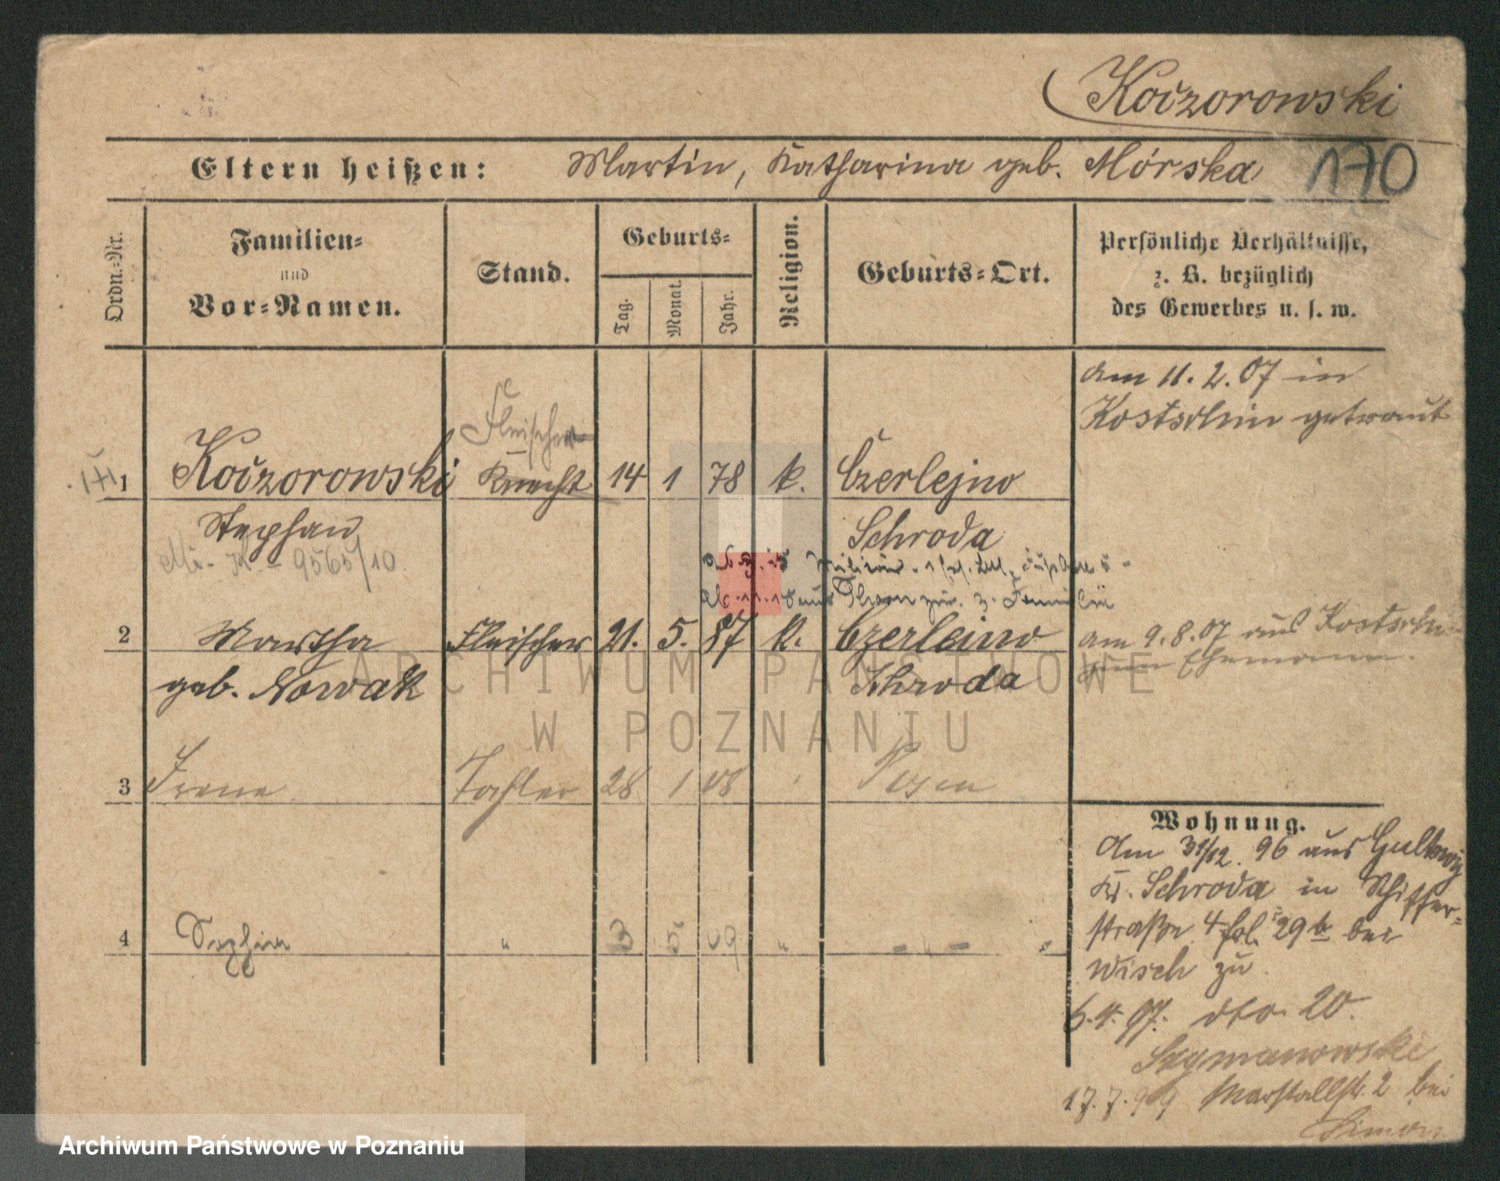 Koczorowski
Eltern heißen: Martin, Katharina geb. Mórska 170
Ordn.-Nr.
Familien-
und
Vor-Namen.
Stand.
Geburts-
Tag.
Monat.
Jahr.
Religion.
Geburts-Ort.
Persönliche Verhältnisse,
z. B. bezüglich
des Gewerbes u. s. w.
am 11. 2. 07 in
Kostschin getraut
Fleischer
1 Koczorowski Knecht 14 1 78 k. Czerlejno
Stephan Schroda
9565/10.
2 Martha Fleischer 21. 5. 87 k. Czerleino
geb. Nowak Schroda
am 9. 8. 07 aus Kostschin
Ehemann.
3 Irene Tochter 28 1 08 Posen
4 Sophie " 3 5 09 " - " -
Wohnung.
Am 31/12. 96 aus Gultowy
Kr. Schroda in Schiffer-
straße 4 fol. 29 b bei
Wisch zu
6. 4. 97. dto. 20.
Szymanowski
17. 7. Marstallstr. 2 bei
Simon
ARCHIWUM PAŃSTWOWE
W POZNANIU
Archiwum Państwowe w Poznaniu